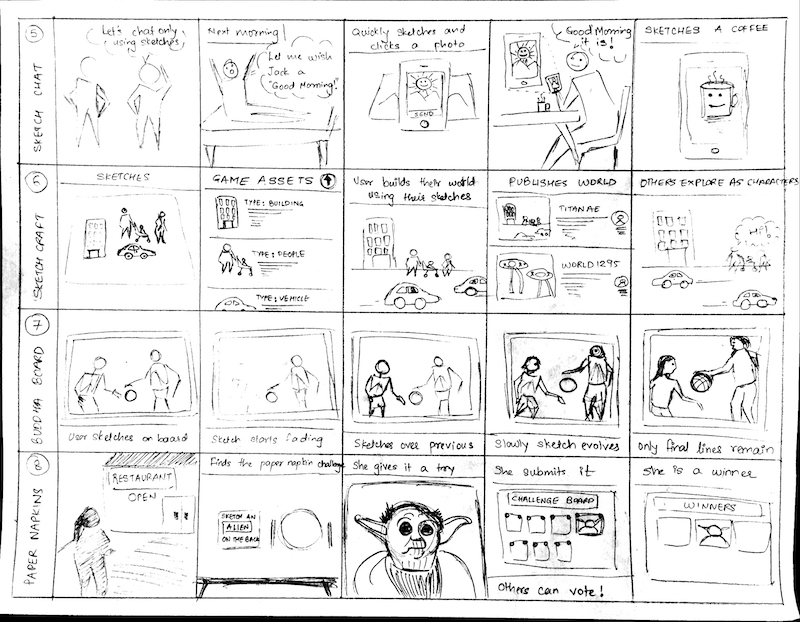 5
SKETCH CHAT
Let's chat only
using sketches
Next morning
Let me wish
Jack a
"Good Morning!"
Quickly sketches and
clicks a photo
SEND
Good Morning
it is!
SKETCHES A COFFEE
SKETCH CRAFT
SKETCHES
GAME ASSETS
TYPE: BUILDING
TYPE: PEOPLE
TYPE: VEHICLE
User builds their world
using their sketches
PUBLISHES WORLD
TITANAE
WORLD 1295
OTHERS EXPLORE AS CHARACTERS
Hi!
7
BUDDHA BOARD
User sketches on board
Sketch starts fading
Sketches over previous
Slowly sketch evolves
Only final lines remain
8
PAPER NAPKINS
RESTAURANT
OPEN
Finds the paper napkin challenge
SKETCH AN
ALIEN
ON THE BACK
She gives it a try
She submits it
CHALLENGE BOARD
Others can vote!
She is a winner
WINNERS